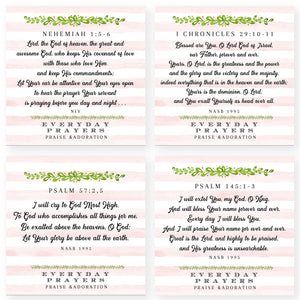 NEHEMIAH 1:5-6
Lord, the God of heaven, the great and
awesome God, who keeps his covenant of love
with those who love Him
and keep His commandments;
Let Your ear be attentive and Your eyes open
to hear the prayer Your servant
is praying before you day and night . . .
NIV
EVERYDAY
PRAYERS
PRAISE &ADORATION
1 CHRONICLES 29:10-11
Blessed are You, O Lord God of Israel,
our Father, forever and ever.
Yours, O Lord, is the greatness and the power
and the glory and the victory and the majesty,
indeed everything that is in the heaven and the earth;
Yours is the dominion, O Lord,
and You exalt Yourself as head over all.
NASB 1995
EVERYDAY
PRAYERS
PRAISE &ADORATION
PSALM 57:2,5
I will cry to God Most High,
To God who accomplishes all things for me.
Be exalted above the heavens, O God;
Let Your glory be above all the earth.
NASB 1995
EVERYDAY
PRAYERS
PRAISE &ADORATION
PSALM 145:1-3
I will extol You, my God, O King,
And I will bless Your name forever and ever.
Every day I will bless You,
And I will praise Your name for ever and over.
Great is the Lord, and highly to be praised,
and His greatness is unsearchable.
NASB 1995
EVERYDAY
PRAYERS
PRAISE &ADORATION